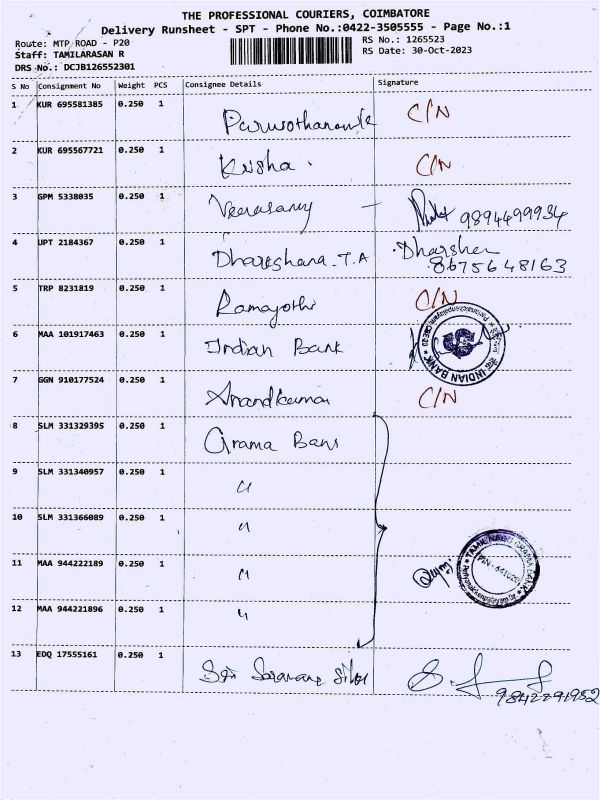 THE PROFESSIONAL COURIERS, COIMBATORE
Delivery Runsheet - SPT - Phone No.:0422-3505555 - Page No.:1
Route: MTP ROAD - P20
RS No.: 1265523
Staff: TAMILARASAN R
RS Date: 30-Oct-2023
DRS No.: DCJB126552301
S No Consignment No Weight PCS Consignee Details Signature
1 KUR 695581385 0.250 1 C/N
2 KUR 695567721 0.250 1 Krisha. C/N
3 GPM 5338035 0.250 1 Veerasamy - 9894499934
4 UPT 2184367 0.250 1 T.A Dharshan
8675648163
5 TRP 8231819 0.250 1 Ramajothi C/N
6 MAA 101917463 0.250 1 Indian Bank INDIAN BANK
7 GGN 910177524 0.250 1 Anandkumar C/N
8 SLM 331329395 0.250 1 Grama Bans
9 SLM 331340957 0.250 1 "
10 SLM 331366089 0.250 1 "
11 MAA 944222189 0.250 1 " TAMIL NADU GRAMA BANK
12 MAA 944221896 0.250 1 "
13 EDQ 17555161 0.250 1 Sri